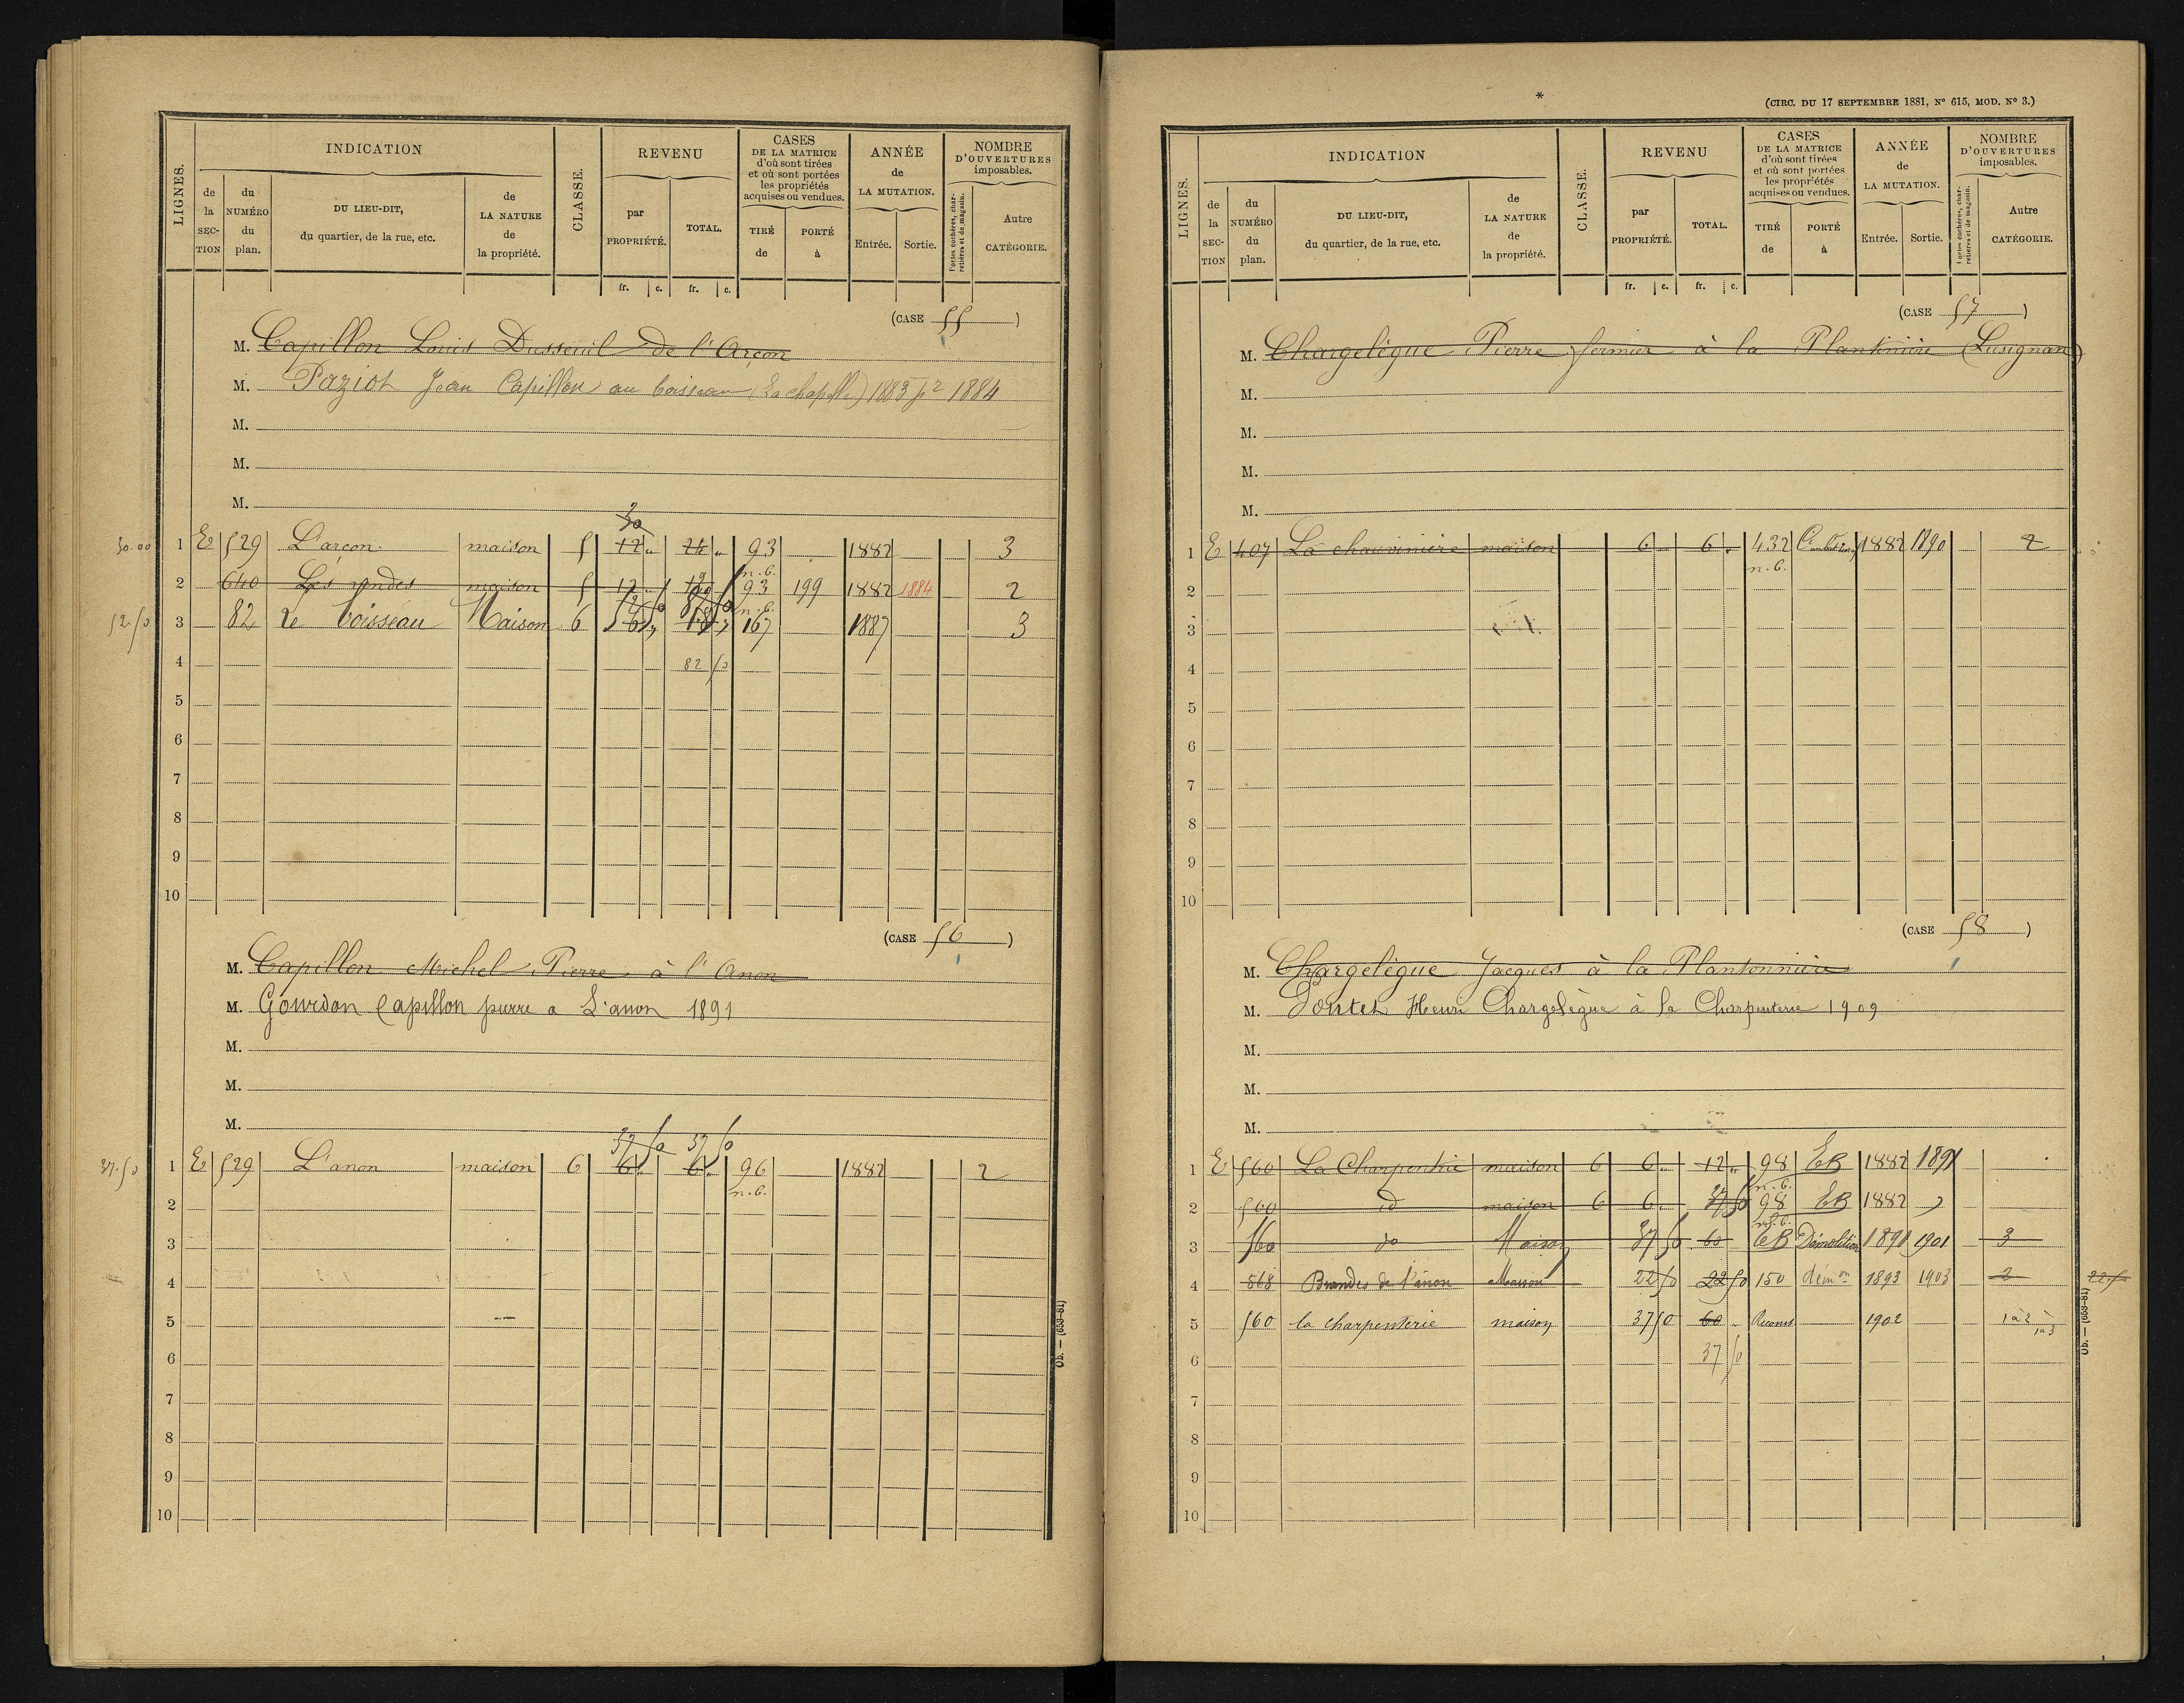 LIGNES.
INDICATION
CLASSE.
REVENU
CASES
DE LA MATRICE
d'où sont tirées
et où sont portées
les propriétés
acquises ou vendues.
ANNÉE
de
LA MUTATION.
NOMBRE
D'OUVERTURES
imposables.
de la SEC-TION
du NUMÉRO du plan.
DU LIEU-DIT,
du quartier, de la rue, etc.
de LA NATURE de la propriété.
par PROPRIÉTÉ.
TOTAL.
TIRÉ de
PORTÉ à
Entrée.
Sortie.
Portes cochères, char-retières et de magasin.
Autre CATÉGORIE.
fr. c. fr. c.
(CASE 55)
M. Capillon Louis Dusseuil de l'Arçon
M. Paziot Jean Capillon au boisseau (La chapelle) 1883 pr 1884
M.
M.
M.
30
30.00 1 E 529 L'arcon maison 5 12 " 24 " 93 1882 3
n.b.
2 640 Les vendes maison 5 12 12 93 199 1882 1884 2
n.b.
52.50 3 82 Le boisseau Maison 6 6 18 167 1887 3
4 82 50
5
6
7
8
9
10
(CASE 56)
M. Capillon Michel Pierre à l'Anon
M. Gourdon Capillon pierre a L'anon 1891
M.
M.
M.
37 50 37 50
37.50 1 E 529 L'anon maison 6 6 " 6 " 96 1882 2
n.b.
2
3
4
5
6
7
8
9
10
Ob. — (653-81)
*
(CIRC. DU 17 SEPTEMBRE 1881, No 615, MOD. No 3.)
LIGNES.
INDICATION
CLASSE.
REVENU
CASES
DE LA MATRICE
d'où sont tirées
et où sont portées
les propriétés
acquises ou vendues.
ANNÉE
de
LA MUTATION.
NOMBRE
D'OUVERTURES
imposables.
de la SEC-TION
du NUMÉRO du plan.
DU LIEU-DIT,
du quartier, de la rue, etc.
de LA NATURE de la propriété.
par PROPRIÉTÉ.
TOTAL.
TIRÉ de
PORTÉ à
Entrée.
Sortie.
Portes cochères, char-retières et de magasin.
Autre CATÉGORIE.
fr. c. fr. c.
(CASE 57)
M. Chargelègue Pierre fermier à la Plantinière (Lusignan)
M.
M.
M.
M.
1 E 407 La chauvinière maison 6 " 6 " 432 1882 1890 2
n.b.
2
3
4
5
6
7
8
9
10
(CASE 58)
M. Chargelègue Jacques à la Plantonnière
M. Pontet Henri Chargelègue à la Charpenterie 1909
M.
M.
M.
1 E 560 La Charpentrie maison 6 6 " 12 " 98 EB 1882 1891
n.b.
2 560 id maison 6 6 " 37 50 98 EB 1882 "
n.b.
3 560 do Maison 37 50 60 EB Démolition 1891 1901 3
4 568 Brandes de l'anon Maison 22 50 22 50 150 démon 1893 1903 2 22.50
5 560 la charpenterie maison 37 50 60 " Reconst. 1902 1 à 2 1 à 3
6 37 50
7
8
9
10
Ob. — (653-81)